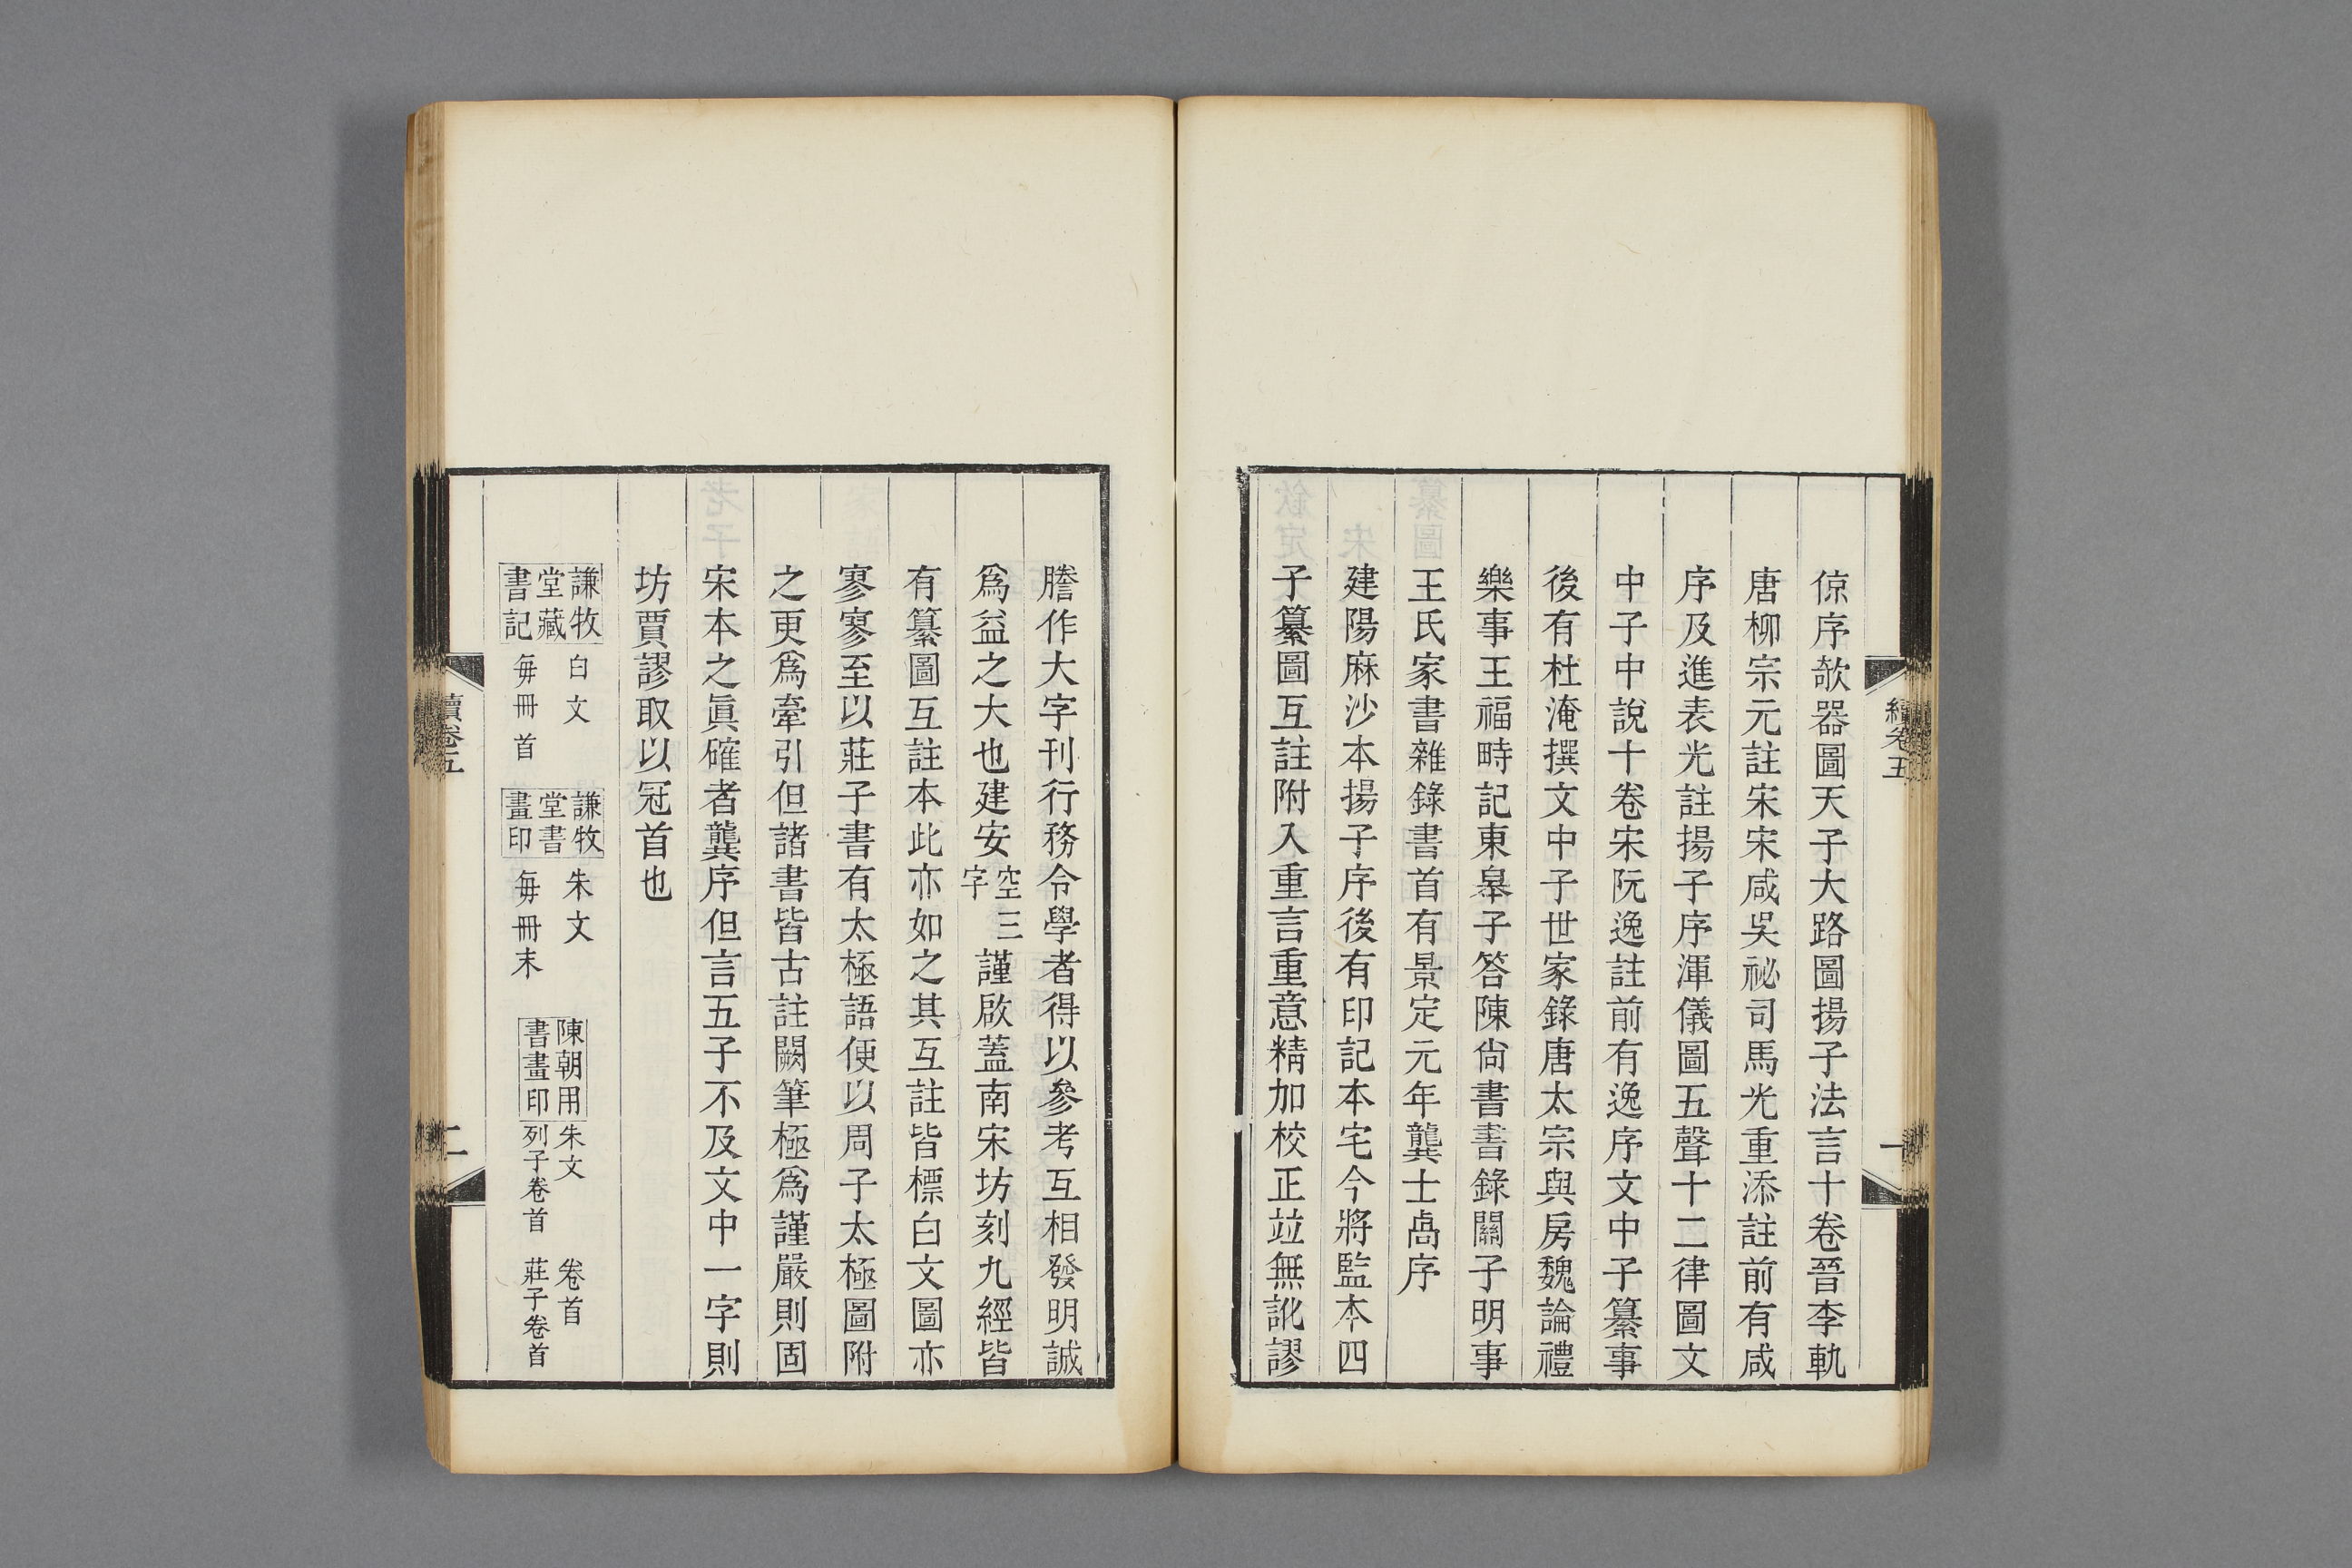 倞序欹器圖天子大路圖揚子法言十卷晉李軌
唐柳宗元註宋宋咸吳祕司馬光重添註前有咸
序及進表光註揚子序渾儀圖五聲十二律圖文
中子中說十卷宋阮逸註前有逸序文中子纂事
後有杜淹撰文中子世家錄唐太宗與房魏論禮
樂事王福畤記東皋子答陳尙書書錄關子明事
王氏家書雜錄書首有景定元年龔士卨序
建陽麻沙本揚子序後有印記本宅今將監本四
子纂圖互註附入重言重意精加校正竝無訛謬
續卷五
一
謄作大字刊行務令學者得以參考互相發明誠
爲益之大也建安空三字謹啟蓋南宋坊刻九經皆
有纂圖互註本此亦如之其互註皆標白文圖亦
寥寥至以莊子書有太極語便以周子太極圖附
之更爲牽引但諸書皆古註闕筆極爲謹嚴則固
宋本之眞確者龔序但言五子不及文中一字則
坊賈謬取以冠首也
謙牧堂藏書記 白文每冊首 謙牧堂書畫印 朱文每冊末 陳朝用書畫印 朱文 卷首 列子卷首 莊子卷首
續卷五
二